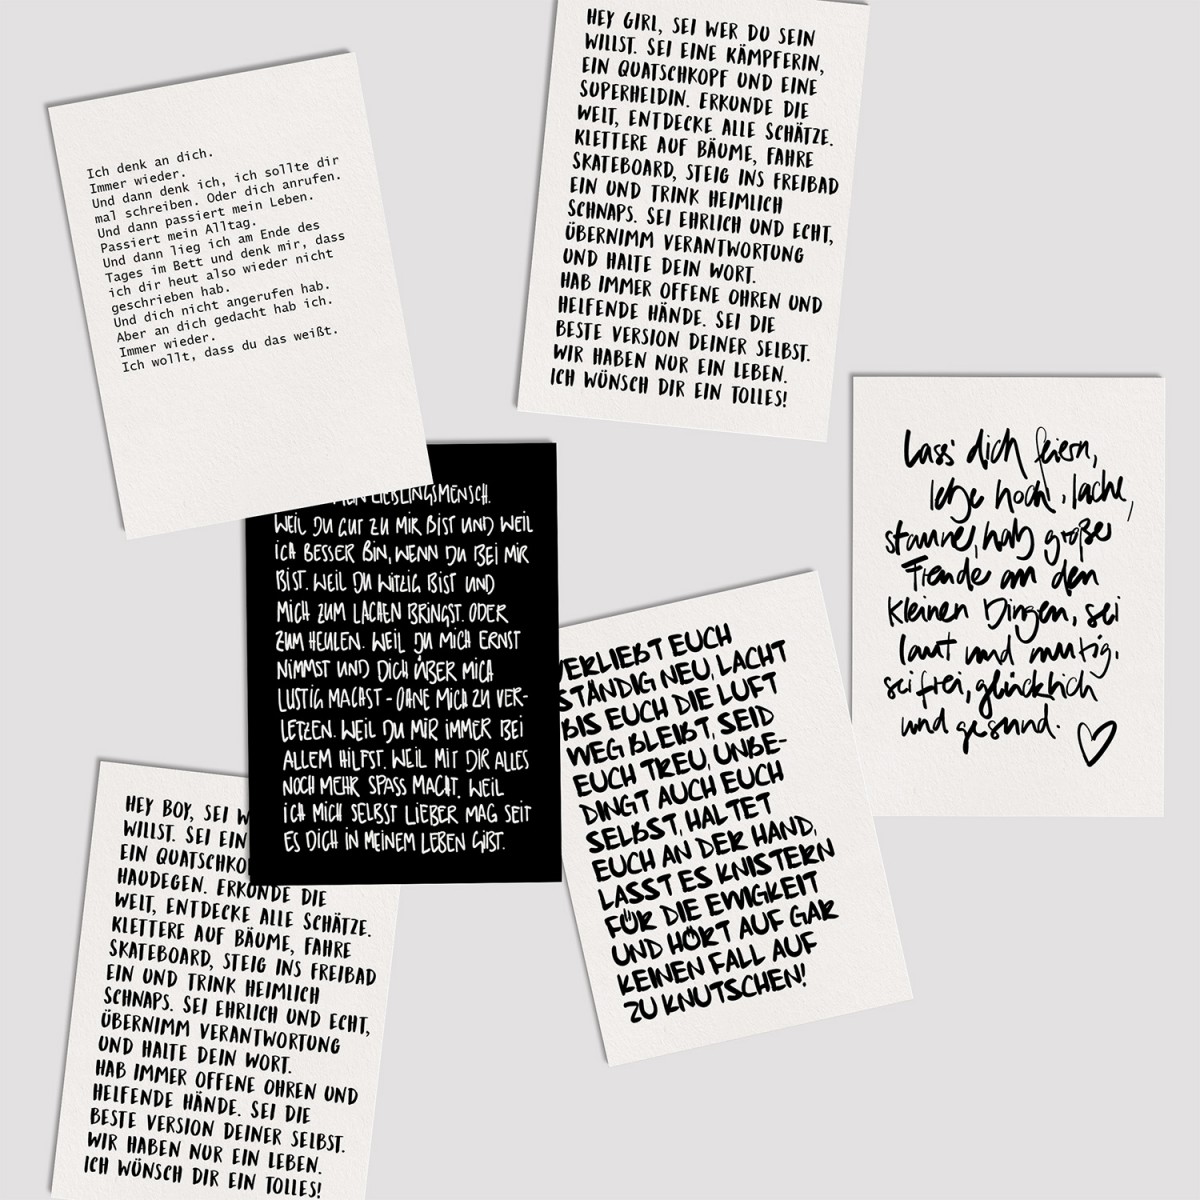 Ich denk an dich.
Immer wieder.
Und dann denk ich, ich sollte dir
mal schreiben. Oder dich anrufen.
Und dann passiert mein Leben.
Passiert mein Alltag.
Und dann lieg ich am Ende des
Tages im Bett und denk mir, dass
ich dir heut also wieder nicht
geschrieben hab.
Und dich nicht angerufen hab.
Aber an dich gedacht hab ich.
Immer wieder.
Ich wollt, dass du das weißt.
HEY GIRL, SEI WER DU SEIN
WILLST. SEI EINE KÄMPFERIN,
EIN QUATSCHKOPF UND EINE
SUPERHELDIN. ERKUNDE DIE
WELT, ENTDECKE ALLE SCHÄTZE.
KLETTERE AUF BÄUME, FAHRE
SKATEBOARD, STEIG INS FREIBAD
EIN UND TRINK HEIMLICH
SCHNAPS. SEI EHRLICH UND ECHT,
ÜBERNIMM VERANTWORTUNG
UND HALTE DEIN WORT.
HAB IMMER OFFENE OHREN UND
HELFENDE HÄNDE. SEI DIE
BESTE VERSION DEINER SELBST.
WIR HABEN NUR EIN LEBEN.
ICH WÜNSCH DIR EIN TOLLES!
Lass' dich feiern,
lebe hoch, lache,
staune, hab große
Freude an den
kleinen Dingen, sei
laut und mutig.
sei frei, glücklich
und gesund.
LIEBLINGSMENSCH.
WEIL DU GUT ZU MIR BIST UND WEIL
ICH BESSER BIN, WENN DU BEI MIR
BIST. WEIL DU WITZIG BIST UND
MICH ZUM LACHEN BRINGST. ODER
ZUM HEULEN. WEIL DU MICH ERNST
NIMMST UND DICH ÜBER MICH
LUSTIG MACHST - OHNE MICH ZU VER-
LETZEN. WEIL DU MIR IMMER BEI
ALLEM HILFST. WEIL MIT DIR ALLES
NOCH MEHR SPASS MACHT. WEIL
ICH MICH SELBST LIEBER MAG SEIT
ES DICH IN MEINEM LEBEN GIBT.
VERLIEBT EUCH
STÄNDIG NEU, LACHT
BIS EUCH DIE LUFT
WEG BLEIBT, SEID
EUCH TREU, UNBE-
DINGT AUCH EUCH
SELBST, HALTET
EUCH AN DER HAND,
LASST ES KNISTERN
FÜR DIE EWIGKEIT
UND HÖRT AUF GAR
KEINEN FALL AUF
ZU KNUTSCHEN!
HEY BOY, SEI W
WILLST. SEI EIN
EIN QUATSCHKO
HAUDEGEN. ERKUNDE DIE
WELT, ENTDECKE ALLE SCHÄTZE.
KLETTERE AUF BÄUME, FAHRE
SKATEBOARD, STEIG INS FREIBAD
EIN UND TRINK HEIMLICH
SCHNAPS. SEI EHRLICH UND ECHT,
ÜBERNIMM VERANTWORTUNG
UND HALTE DEIN WORT.
HAB IMMER OFFENE OHREN UND
HELFENDE HÄNDE. SEI DIE
BESTE VERSION DEINER SELBST.
WIR HABEN NUR EIN LEBEN.
ICH WÜNSCH DIR EIN TOLLES!